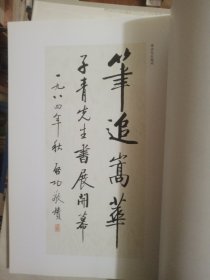 筆追嵩華
子青先生書展開幕
一九八四年秋 啟功敬賀